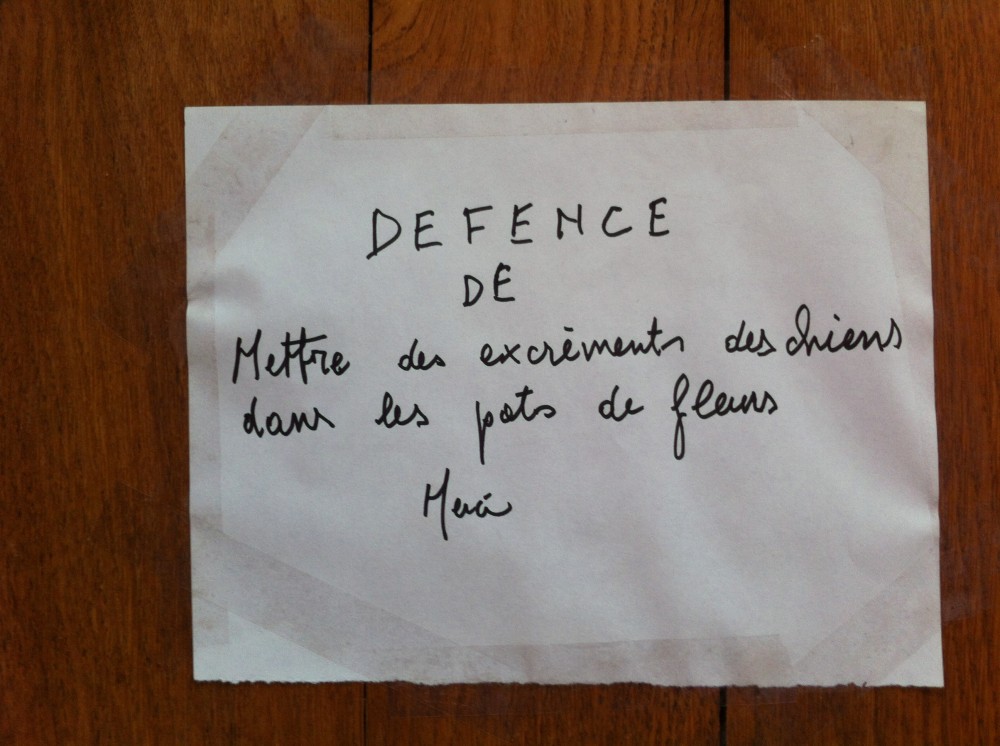 DEFENCE
DE
Mettre des excrèments des chiens
dans les pots de fleurs
Merci